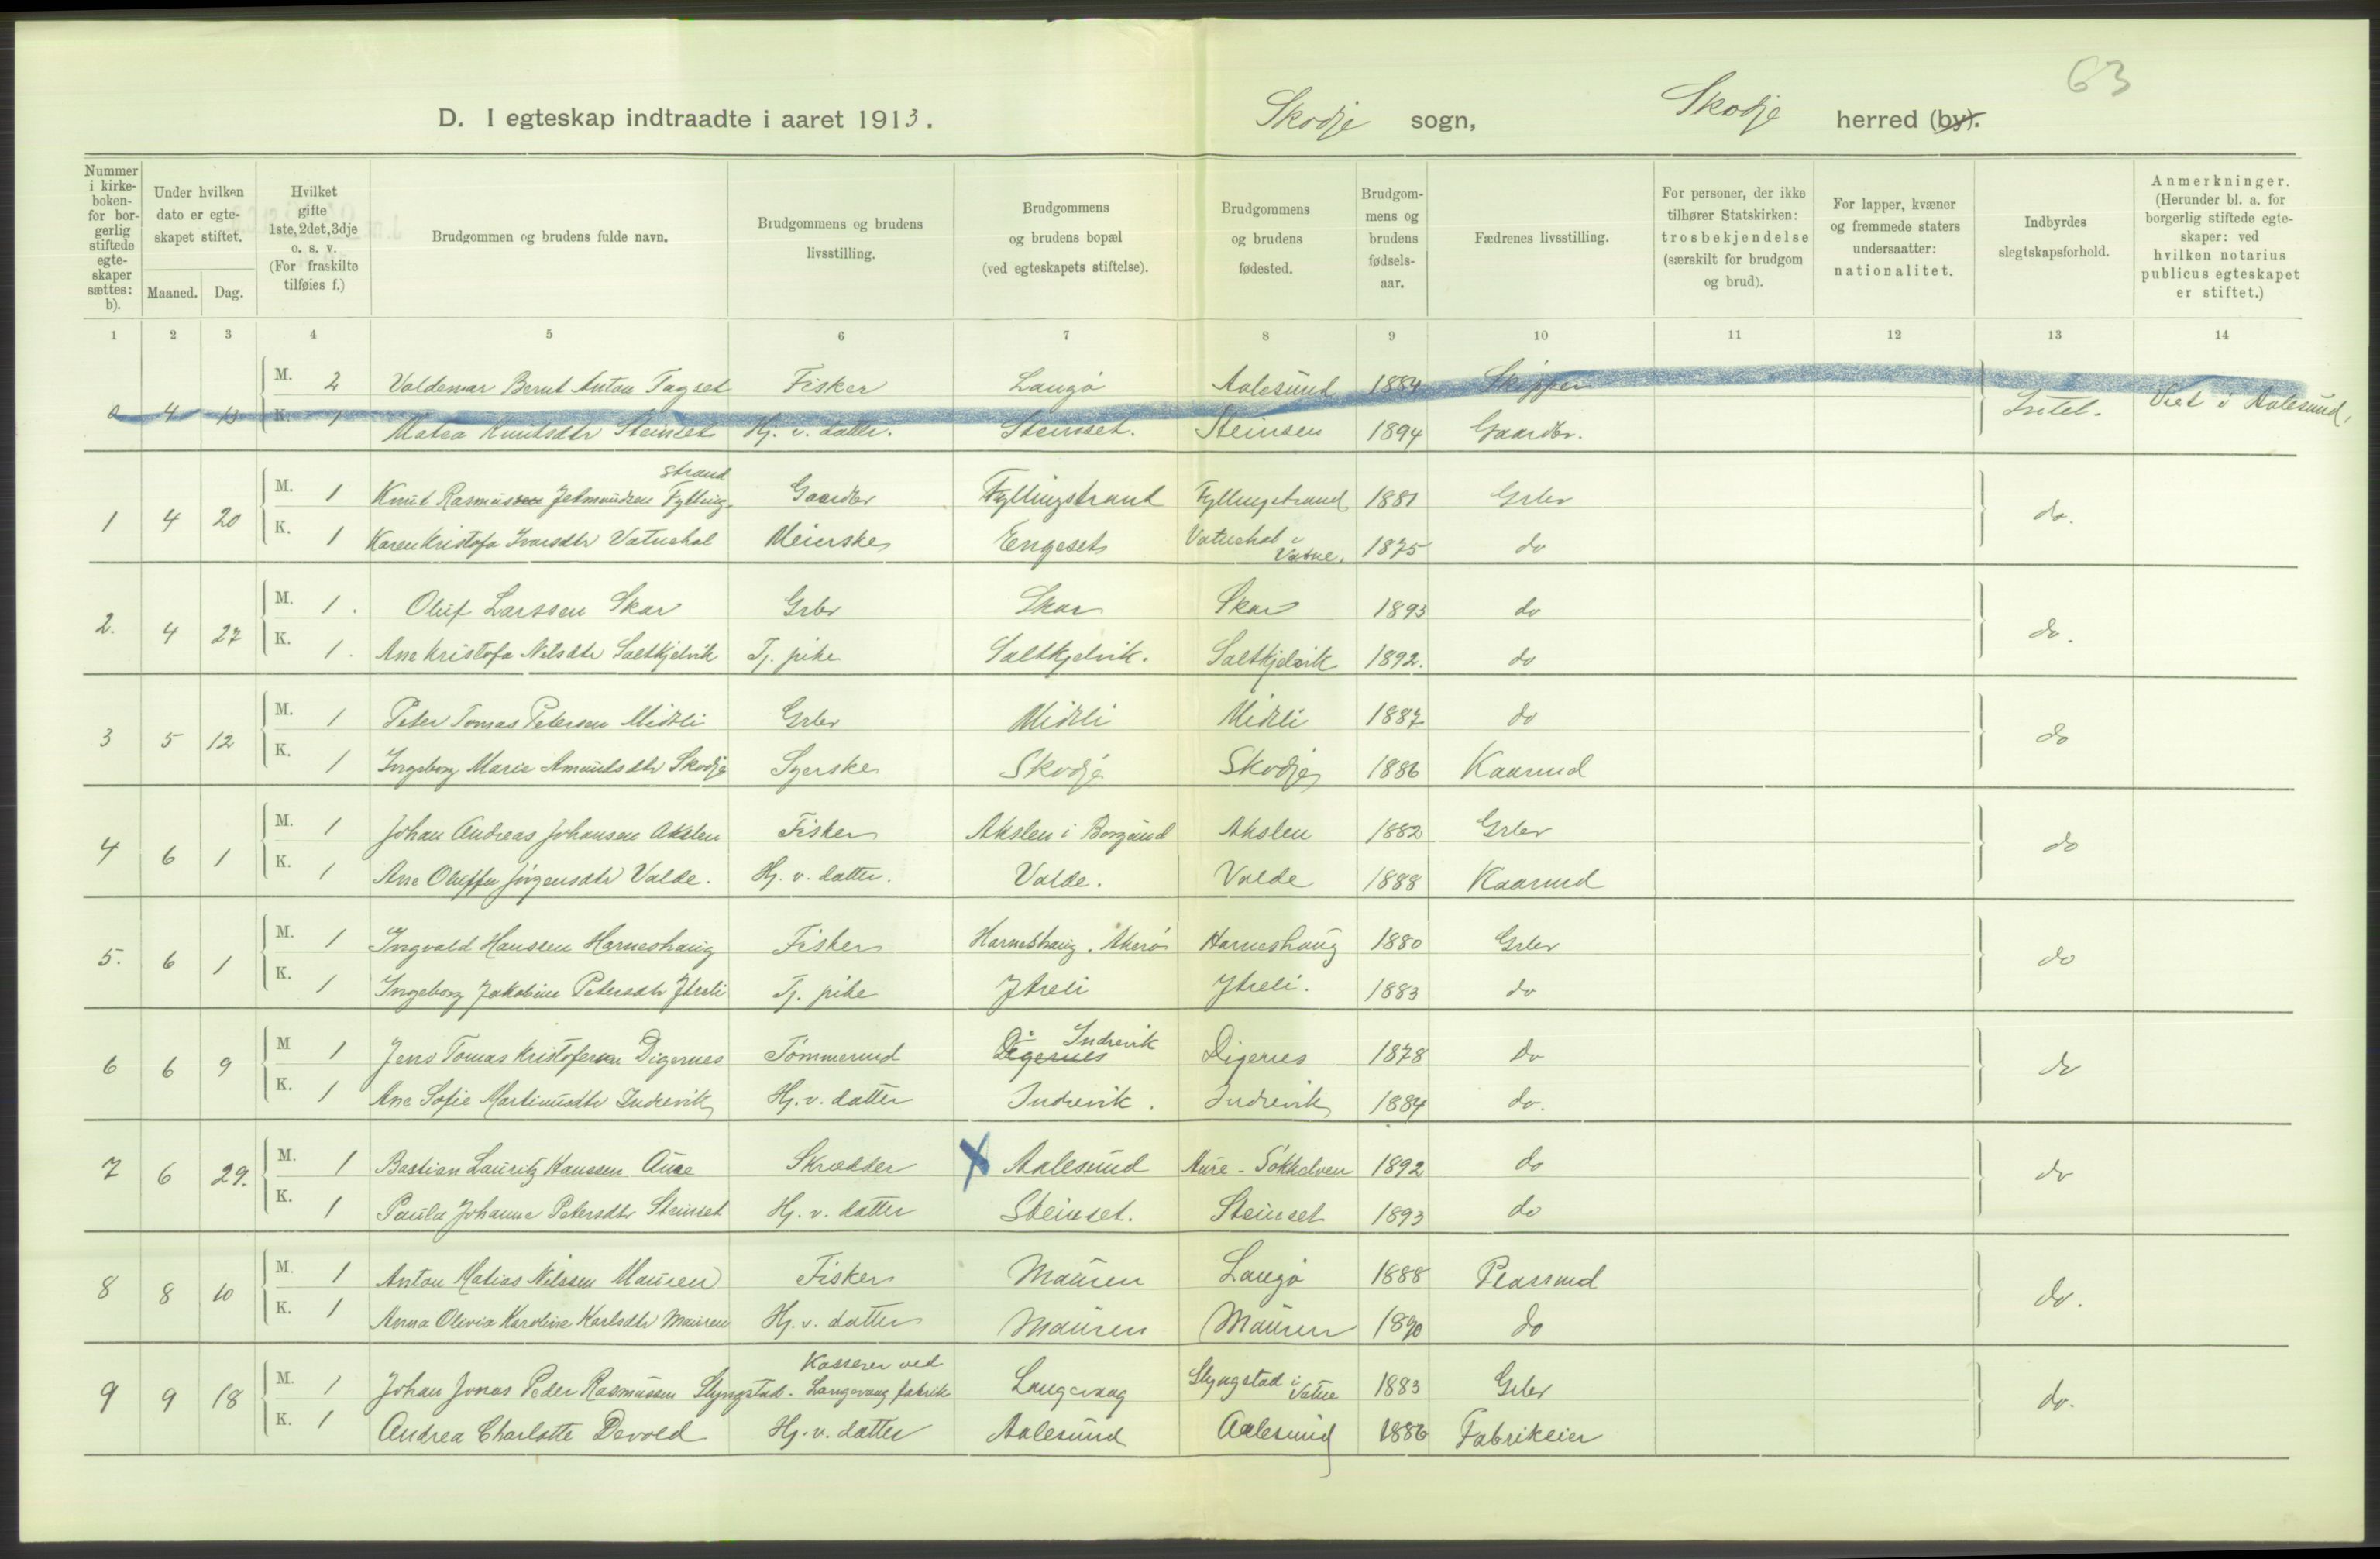 63
D. I egteskap indtraadte i aaret 1913. Skodje sogn, Skodje herred (by).
Nummer i kirke-boken- for bor-gerlig stiftede egte-skaper sættes: b).
Under hvilken dato er egte-skapet stiftet.
Maaned. Dag.
Hvilket gifte 1ste, 2det, 3dje o. s. v. (For fraskilte tilføies f.)
Brudgommen og brudens fulde navn.
Brudgommens og brudens livsstilling.
Brudgommens og brudens bopæl (ved egteskapets stiftelse).
Brudgommens og brudens fødested.
Brudgom-mens og brudens fødsels-aar.
Fædrenes livsstilling.
For personer, der ikke tilhører Statskirken: trosbekjendelse (særskilt for brudgom og brud).
For lapper, kvæner og fremmede staters undersaatter: nationalitet.
Indbyrdes slegtskapsforhold.
Anmerkninger. (Herunder bl. a. for borgerlig stiftede egte-skaper: ved hvilken notarius publicus egteskapet er stiftet.)
1 2 3 4 5 6 7 8 9 10 11 12 13 14
M. 2 Valdemar Bernt Anton Tagset Fisker Langö Aalesund 1884 Skipper
4 13 K. 1 Matea Knutsdtr Steinset Hj. v. datter. Steinset. Steinsen 1894 Gaardbr. Intet. Viet i Aalesund,
strand
M. 1 Knut Rasmussen Jetmundsen Fylling- Gaardbr Fyllingstrand Fyllingstrand 1881 Grbr
1 4 20 K. 1 Karen Kristofa Ivarsdtr Vatnehol Meierske Engeset Vatnehol i Vatne. 1875 do do.
M. 1. Oluf Larssen Skar Grbr Skar Skar 1893 do
2. 4 27 K. 1. Ane Kristofa Nilsdtr Saltkjelvik Tj. pike Saltkjelvik. Saltkjelvik 1892. do do.
M. 1 Peter Tomas Petersen Midtli Grbr Midtli Midtli 1887 do
3 5 12 K. 1 Ingeborg Marie Amundsdtr Skodje Syerske Skodje Skodje 1886 Kaarmd do
M. 1 Johan Andreas Johansen Akslen Fisker Akslen i Borgund Akslen 1882 Grbr
4 6 1 K. 1 Ane Oluffa Jörgensdtr Valde. Hj. v. datter. Valde. Valde 1888 Kaarmd do
M. 1 Ingvald Hanssen Harneshaug Fisker Harneshaug. Akerö Harneshaug 1880 Grbr
5. 6 1 K. 1 Ingeborg Jakobine Petersdtr Ytreli Tj. pike Ytreli Ytreli. 1883 do do
Indrevik
M 1 Jens Tomas Kristofersen Digernes Tömmermd Digernes Digernes 1878 do
6 6 9 K. 1 Ane Sofie Martinusdtr Indrevik Hj. v. datter Indrevik. Indrevik 1884 do. do
M. 1 Bastian Lauritz Hanssen Aure Skrædder X Aalesund Aure - Sökkelven 1892 do
7 6 29. K. 1 Paula Johanne Petersdtr Steinset Hj. v. datter Steinset. Steinset 1893 do do
M. 1 Anton Matias Nilssen Mauren Fisker Mauren Langö 1888 Plassmd
8 8 10 K. 1 Anna Olivia Karoline Karlsdtr Mauren Hj. v. datter Mauren Mauren 1890 do do.
Kasserer ved
M. 1 Johan Jonas Peder Rasmussen Slyngstad. Langevaag fabrik Langevaag Slyngstad i Vatne 1883 Grbr
9 9 18 K. 1 Andrea Charlotte Devold Hj. v. datter Aalesund Aalesund 1886 Fabrikeier do.